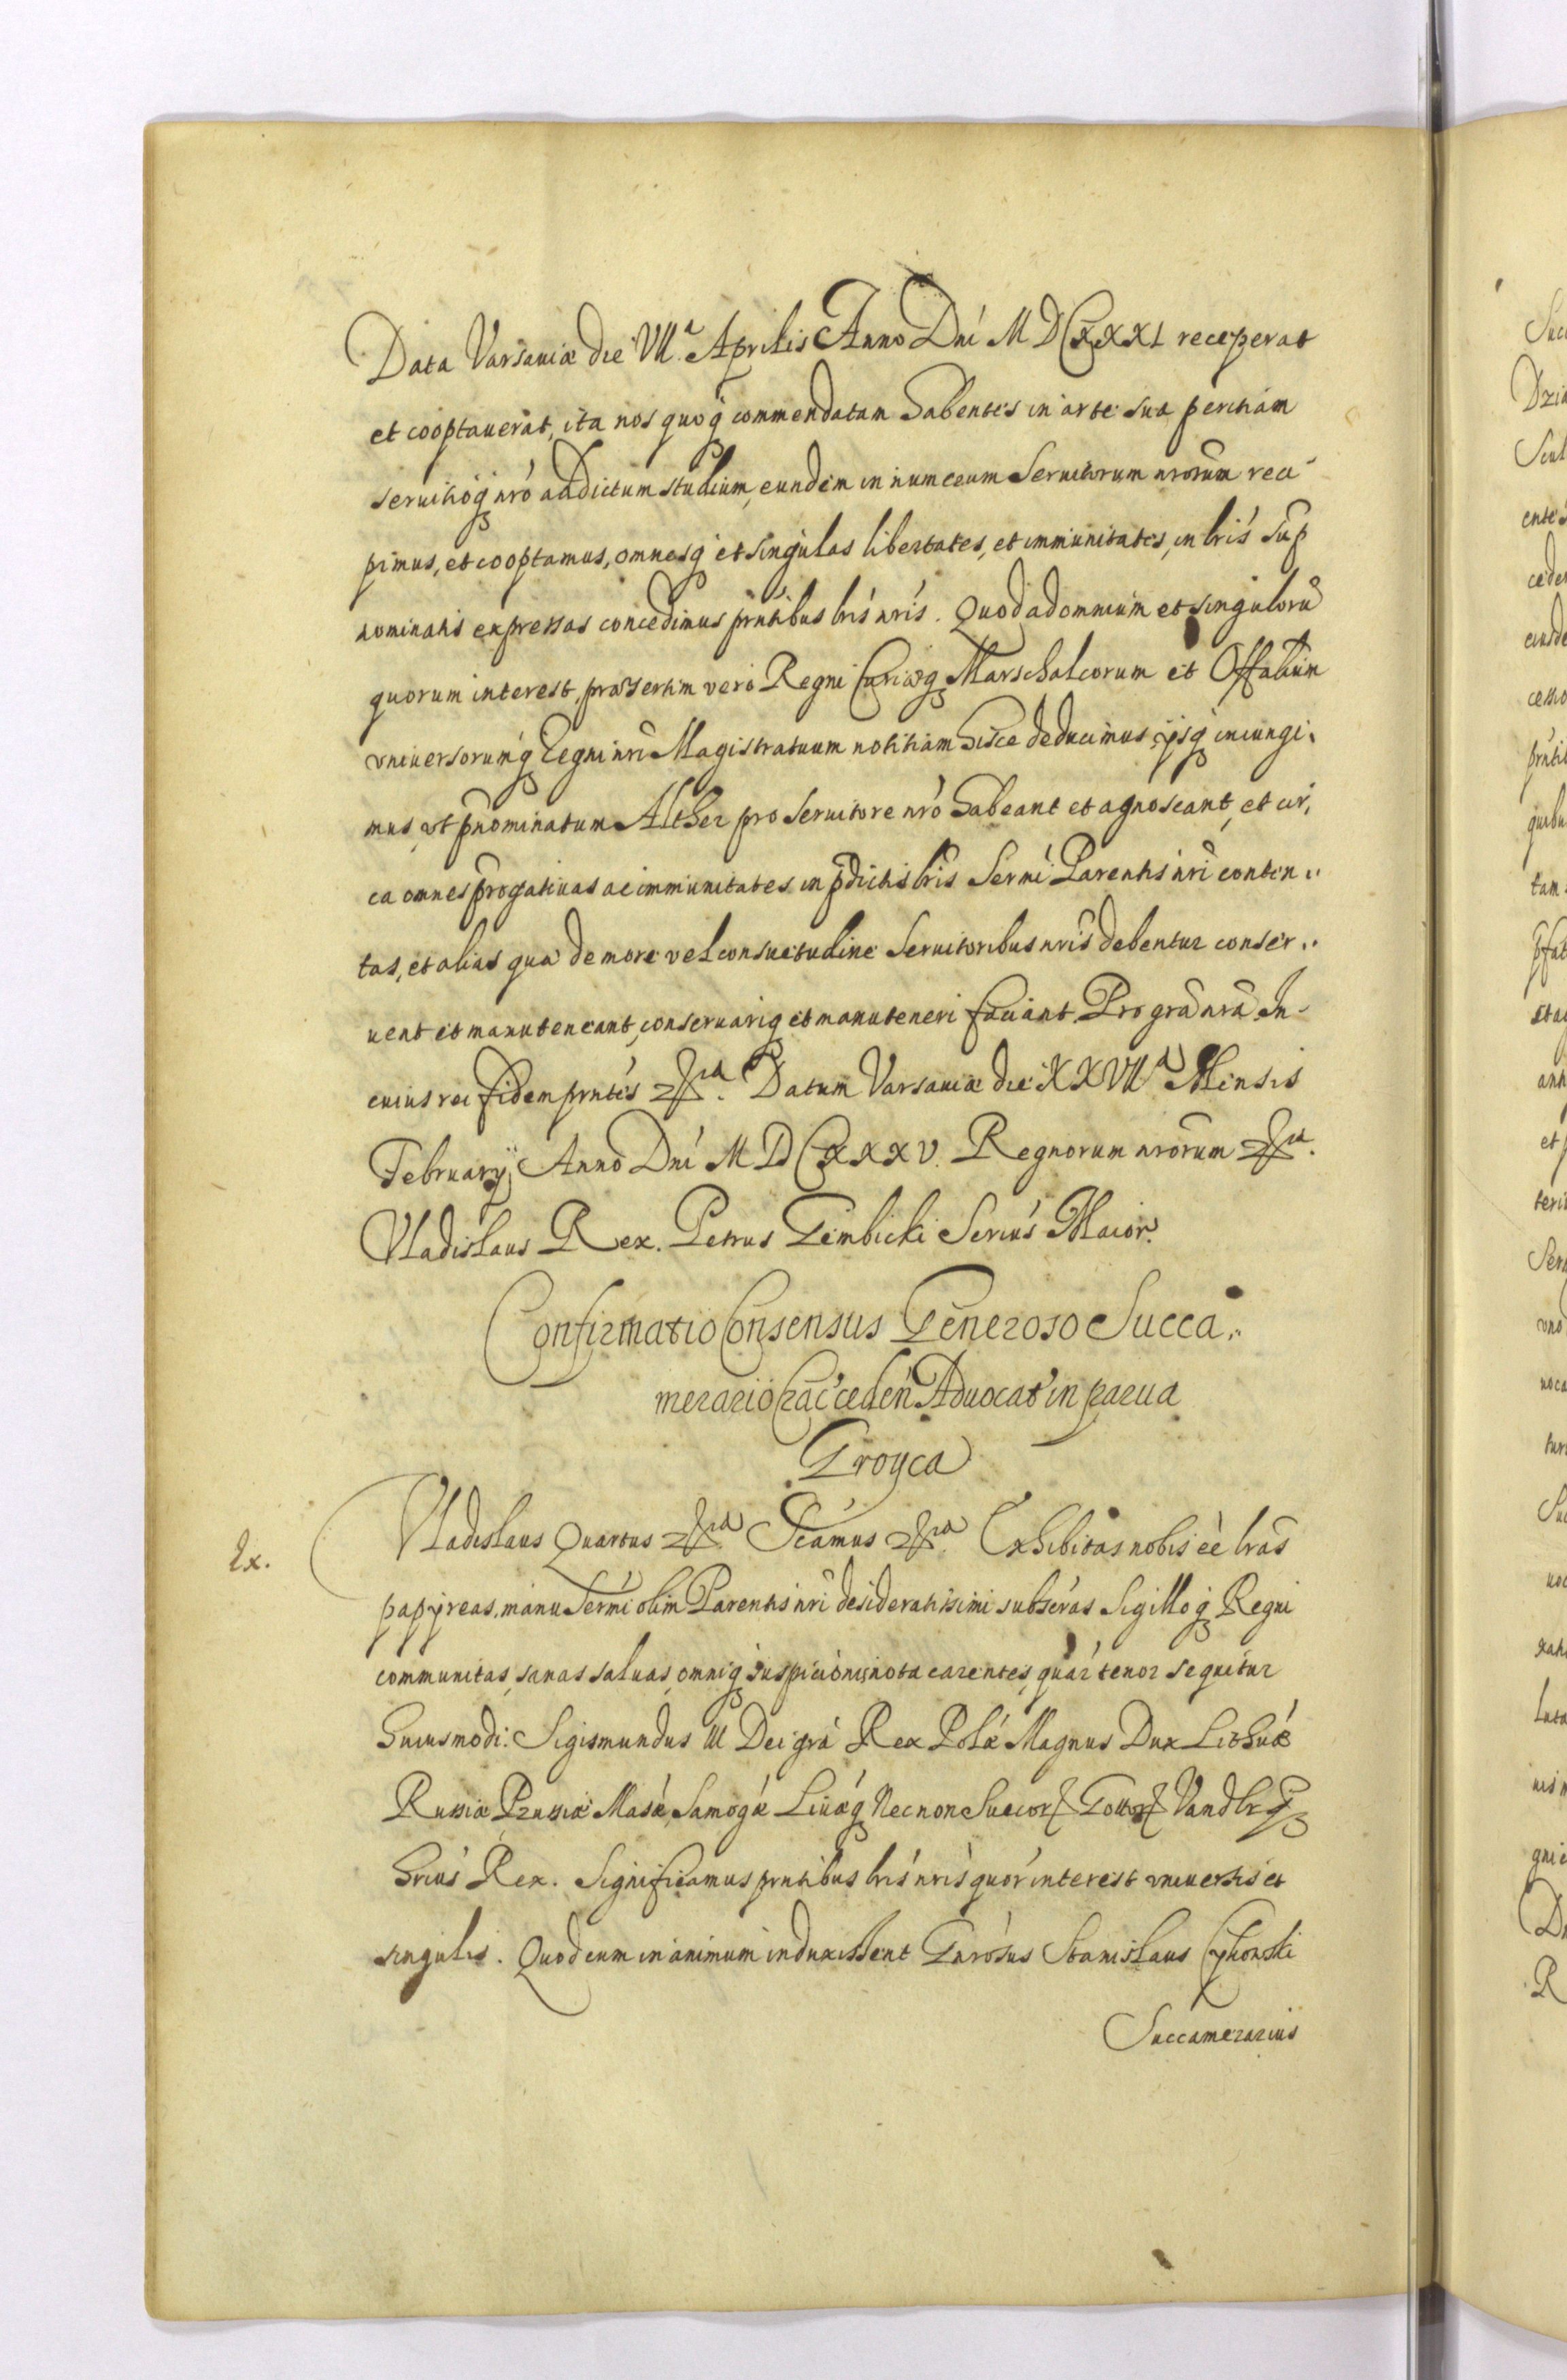 Data Varsaviæ die VII.ª Aprilis Anno Dni M D CXXXI receperat
et cooptaverat, ita nos quoq commendatam habentes in arte sua peritiam
servitioq nro addictum studium, eundem in numerum Servitorum nrorum reci
pimus, et cooptamus, omnesq et singulas libertates, et immunitates, in lris sup
nominatis expressas concedimus pntibus lris nris. Quod ad omnium et singuloru
quorum interest, præsertim vero Regni Curiæq Marschalcorum et Offalium
universorumq Regni nri Magistratuum notitiam hisce deducimus, ysq iniungi,
mus, vt pnominatum Alther pro Servitore nro habeant et agnoscant, et cir,
ca omnes progativas ac immunitates in pdictis lris Sermi Parentis nri conten,,
tas, et alias quæ de more vel consuetudine Servitoribus nris debentur conser,,
vent et manuteneant, conservariq et manuteneri faciant Pro gra nra In
cuius rei fidem pntes &ra. Datum Varsaviæ die XXVIIª Mensis
February Anno Dni M D CXXXV. Regnorum nrorum &ra.
Vladislaus Rex. Petrus Gembicki Secrius Maior.
Confirmatio Consensus Generoso Succa,,
merario Crac ceden Advocat in parva
Troyca
Ex.
Vladislaus Quartus &ra Scamus &ra Exhibitas nobis eè lras
papyreas, manu Sermi olim Parentis nri desideratissimi subscras Sigilloq Regni
communitas, sanas salvas, omniq suspicionis nota carentes, quar tenor sequitur
huiusmodi: Sigismundus III Dei gra Rex Polæ Magnus Dux Lithuæ
Russiæ Prussiæ Masæ, Samogæ Livæq Necnon Suecor Gottor Vandlrq
hrius Rex. Significamus pntibus lris nris quor interest universis et
singulis. Quod cum in animum induxissent Gnrosus Stanislaus Cykowski
Succamerarius